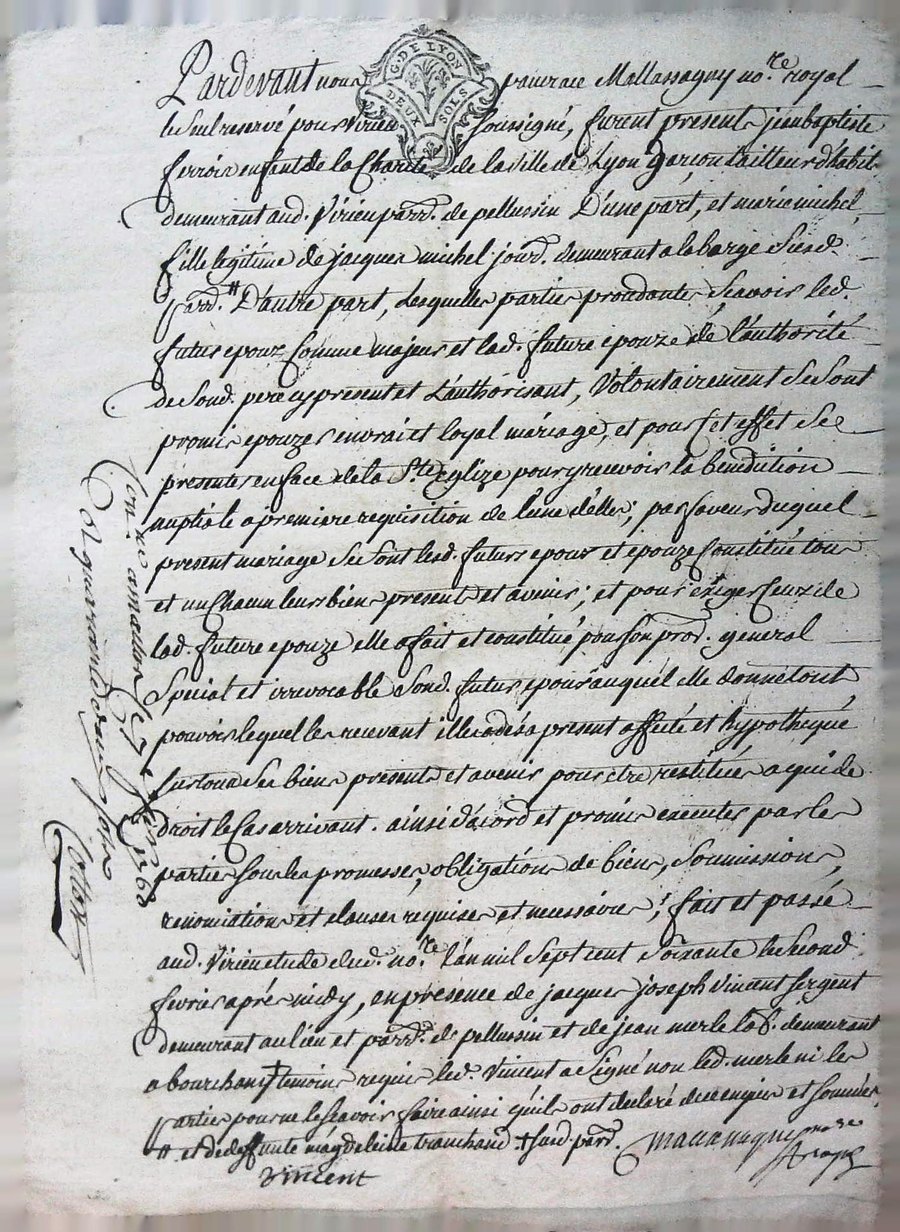 G. DE LYON
DEUX SOLS
Pardevant nous pancrace Mallassagny no.re royal
le seul reservé pour virieu soussigné, furent present jean baptiste
ferrois enfant de la Charité de la ville de Lyon garçon tailleur d'habit
demeurant aud. Virieu parr. de pellussin D'une part, et marie michel
fille legitime de jacques michel jour. demeurant a la barge susd.
parr. # D'autre part, Lesquelles parties procedantes sçavoir led.
futur epoux Comme majeur et lad. future epouze de L'authorité
de sond. pere cy present et L'authorisant, Volontairement se sont
promis epouzer en vrai et loyal mariage, et pour cet effet se
presenter en face de la Ste Eglize pour y recevoir la benediction
nuptiale a premiere requisition de l'une d'elles; par faveur duquel
present mariage se sont led. futurs epoux et epouze Constitué tous
et un Chacun leurs biens present et avenir; et pour exiger Ceux de
lad. future epouze elle a fait et constitué pour son pror. general
special et irrevocable sond. futur epoux auquel elle donne tout
pouvoir lequel les recevant il les a des a present affecté et hypothequé
sur tous ses biens present et avenir pour etre restitués a qui de
droit le Cas arrivant. ainsi d'acord et promis executer par les
parties sous les promesses, obligations de biens, soumissions,
renonciations et clauses requises et necessaires; fait et passé
aud. virieu etude dud. no.re L'an mil sept cent soixante le second
fevrier après midy, en presence de jacques joseph vincent sergent
demeurant au lieu et parr. de pellussin et de jean merle lab. demeurant
a bourchany + temoins requis led. vincent a signé non led. merle ni les
parties pour ne le sçavoir faire ainsi qu'ils ont declaré de ce enquis et sommés
# et de deffunte magdeleine tranchand + susd. parr. Mallassagny no.re
vincent
1760
et quarante sols